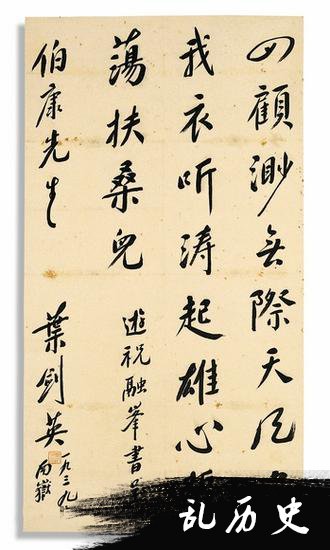 四顧渺無際天风
我衣听涛起雄心
蕩扶桑兒
遊祝融峯書
伯康先生
葉劍英
一九三九
南嶽
乱历史